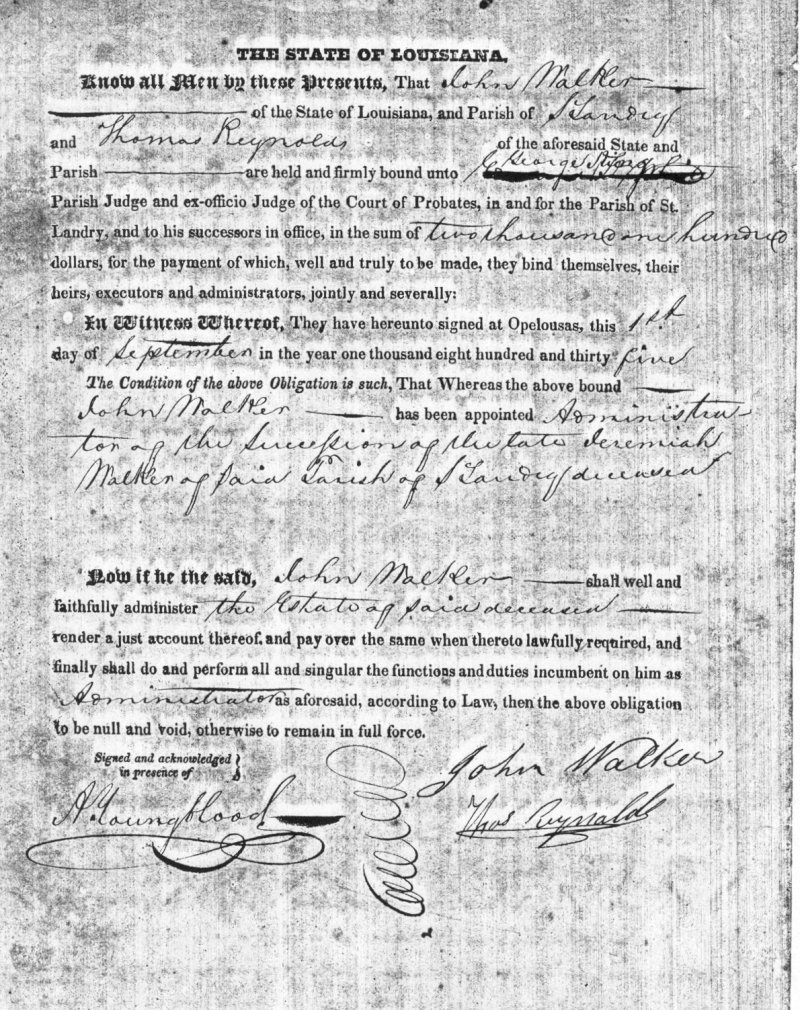 THE STATE OF LOUISIANA,
Know all Men by these Presents, That John Walker
of the State of Louisiana, and Parish of St Landry
and Thomas Reynolds of the aforesaid State and
Parish are held and firmly bound unto George
Parish Judge and ex-officio Judge of the Court of Probates, in and for the Parish of St.
Landry, and to his successors in office, in the sum of two thousand one hundred
dollars, for the payment of which, well and truly to be made, they bind themselves, their
heirs, executors and administrators, jointly and severally:
In Witness Whereof, They have hereunto signed at Opelousas, this 1st
day of September in the year one thousand eight hundred and thirty five
The Condition of the above Obligation is such, That Whereas the above bound
John Walker has been appointed Administra-
tor of the Succession of the late Jeremiah
Walker of said Parish of St Landry deceased
Now if he the said, John Walker shall well and
faithfully administer the Estate of said deceased
render a just account thereof, and pay over the same when thereto lawfully required, and
finally shall do and perform all and singular the functions and duties incumbent on him as
Administrator as aforesaid, according to Law, then the above obligation
to be null and void, otherwise to remain in full force.
Signed and acknowledged
in presence of
John Walker
A. Youngblood
Thos Reynolds